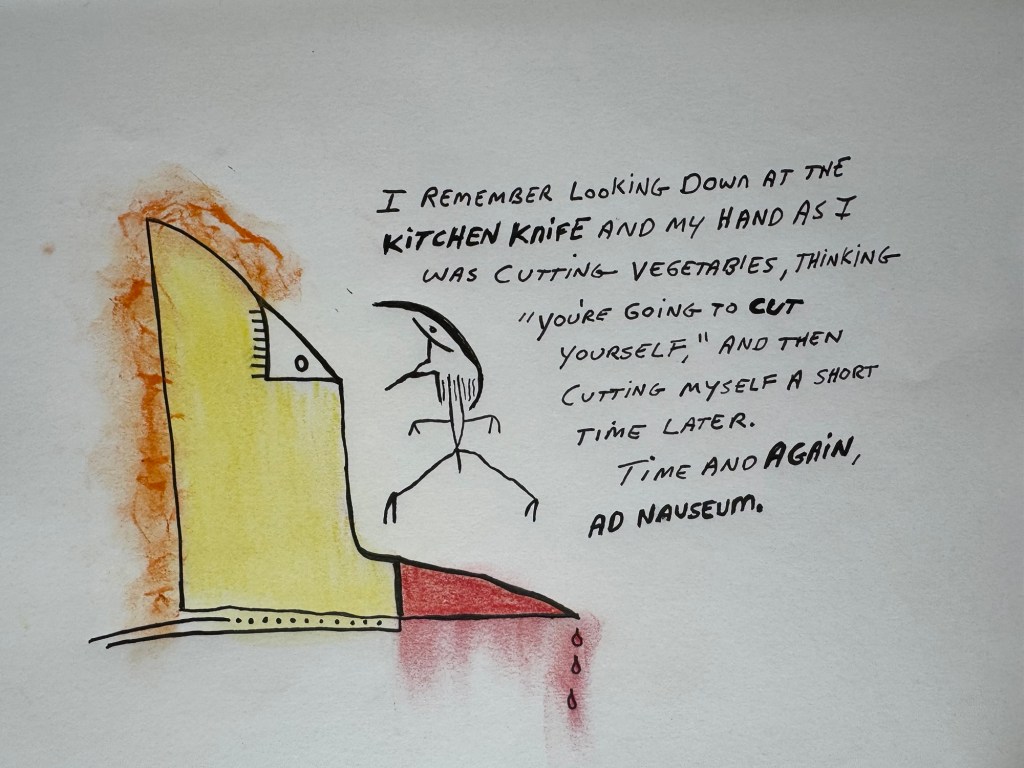 I REMEMBER LOOKING DOWN AT THE
KITCHEN KNIFE AND MY HAND AS I
WAS CUTTING VEGETABLES, THINKING
"YOU'RE GOING TO CUT
YOURSELF," AND THEN
CUTTING MYSELF A SHORT
TIME LATER.
TIME AND AGAIN,
AD NAUSEUM.